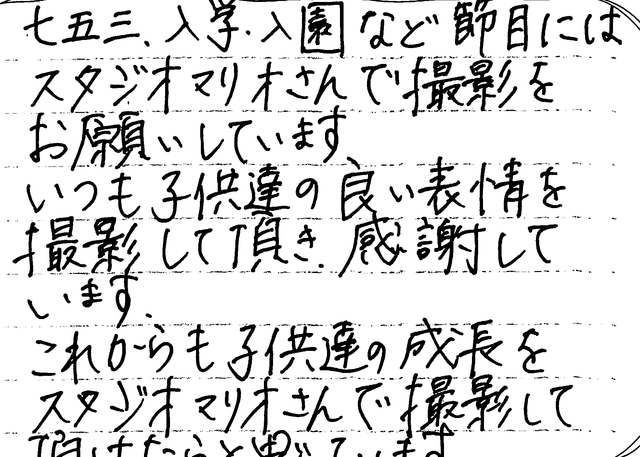 七五三、入学・入園など節目には
スタジオマリオさんで撮影を
お願いしています。
いつも子供達の良い表情を
撮影して頂き、感謝して
います。
これからも子供達の成長を
スタジオマリオさんで撮影して
頂けたらと思っています